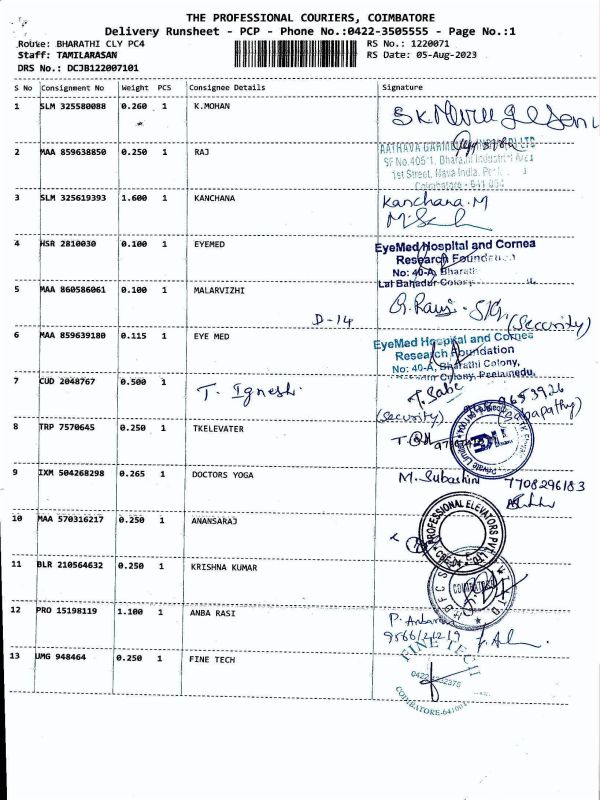 THE PROFESSIONAL COURIERS, COIMBATORE
Delivery Runsheet - PCP - Phone No.:0422-3505555 - Page No.:1
Route: BHARATHI CLY PC4 RS No.: 1220071
Staff: TAMILARASAN RS Date: 05-Aug-2023
DRS No.: DCJB122007101
S No Consignment No Weight PCS Consignee Details Signature
1 SLM 325580088 0.260 1 K.MOHAN
2 MAA 859638850 0.250 1 RAJ
SF No.405/1, Bharathi Industrial Area
1st Street, Nava India,
Coimbatore - 641
3 SLM 325619393 1.600 1 KANCHANA Kanchana.M
4 HSR 2810030 0.100 1 EYEMED EyeMed Hospital and Cornea
Research Foundation
No: 40-A, Bharathi
Lal Bahadur Colony
5 MAA 860586061 0.100 1 MALARVIZHI
D-14 (Security)
6 MAA 859639180 0.115 1 EYE MED EyeMed Hospital and Cornea
Research Foundation
No: 40-A, Bharathi Colony,
Colony, Peelamedu,
7 CUD 2048767 0.500 1 T.
(Security)
8 TRP 7570645 0.250 1 TKELEVATER
9 IXM 504268298 0.265 1 DOCTORS YOGA M. Subashini 7708296183
10 MAA 570316217 0.250 1 ANANSARAJ PROFESSIONAL ELEVATORS PVT
11 BLR 210564632 0.250 1 KRISHNA KUMAR COIMBATORE
12 PRO 15198119 1.100 1 ANBA RASI P.
13 UMG 948464 0.250 1 FINE TECH FINE TECH
COIMBATORE-641001